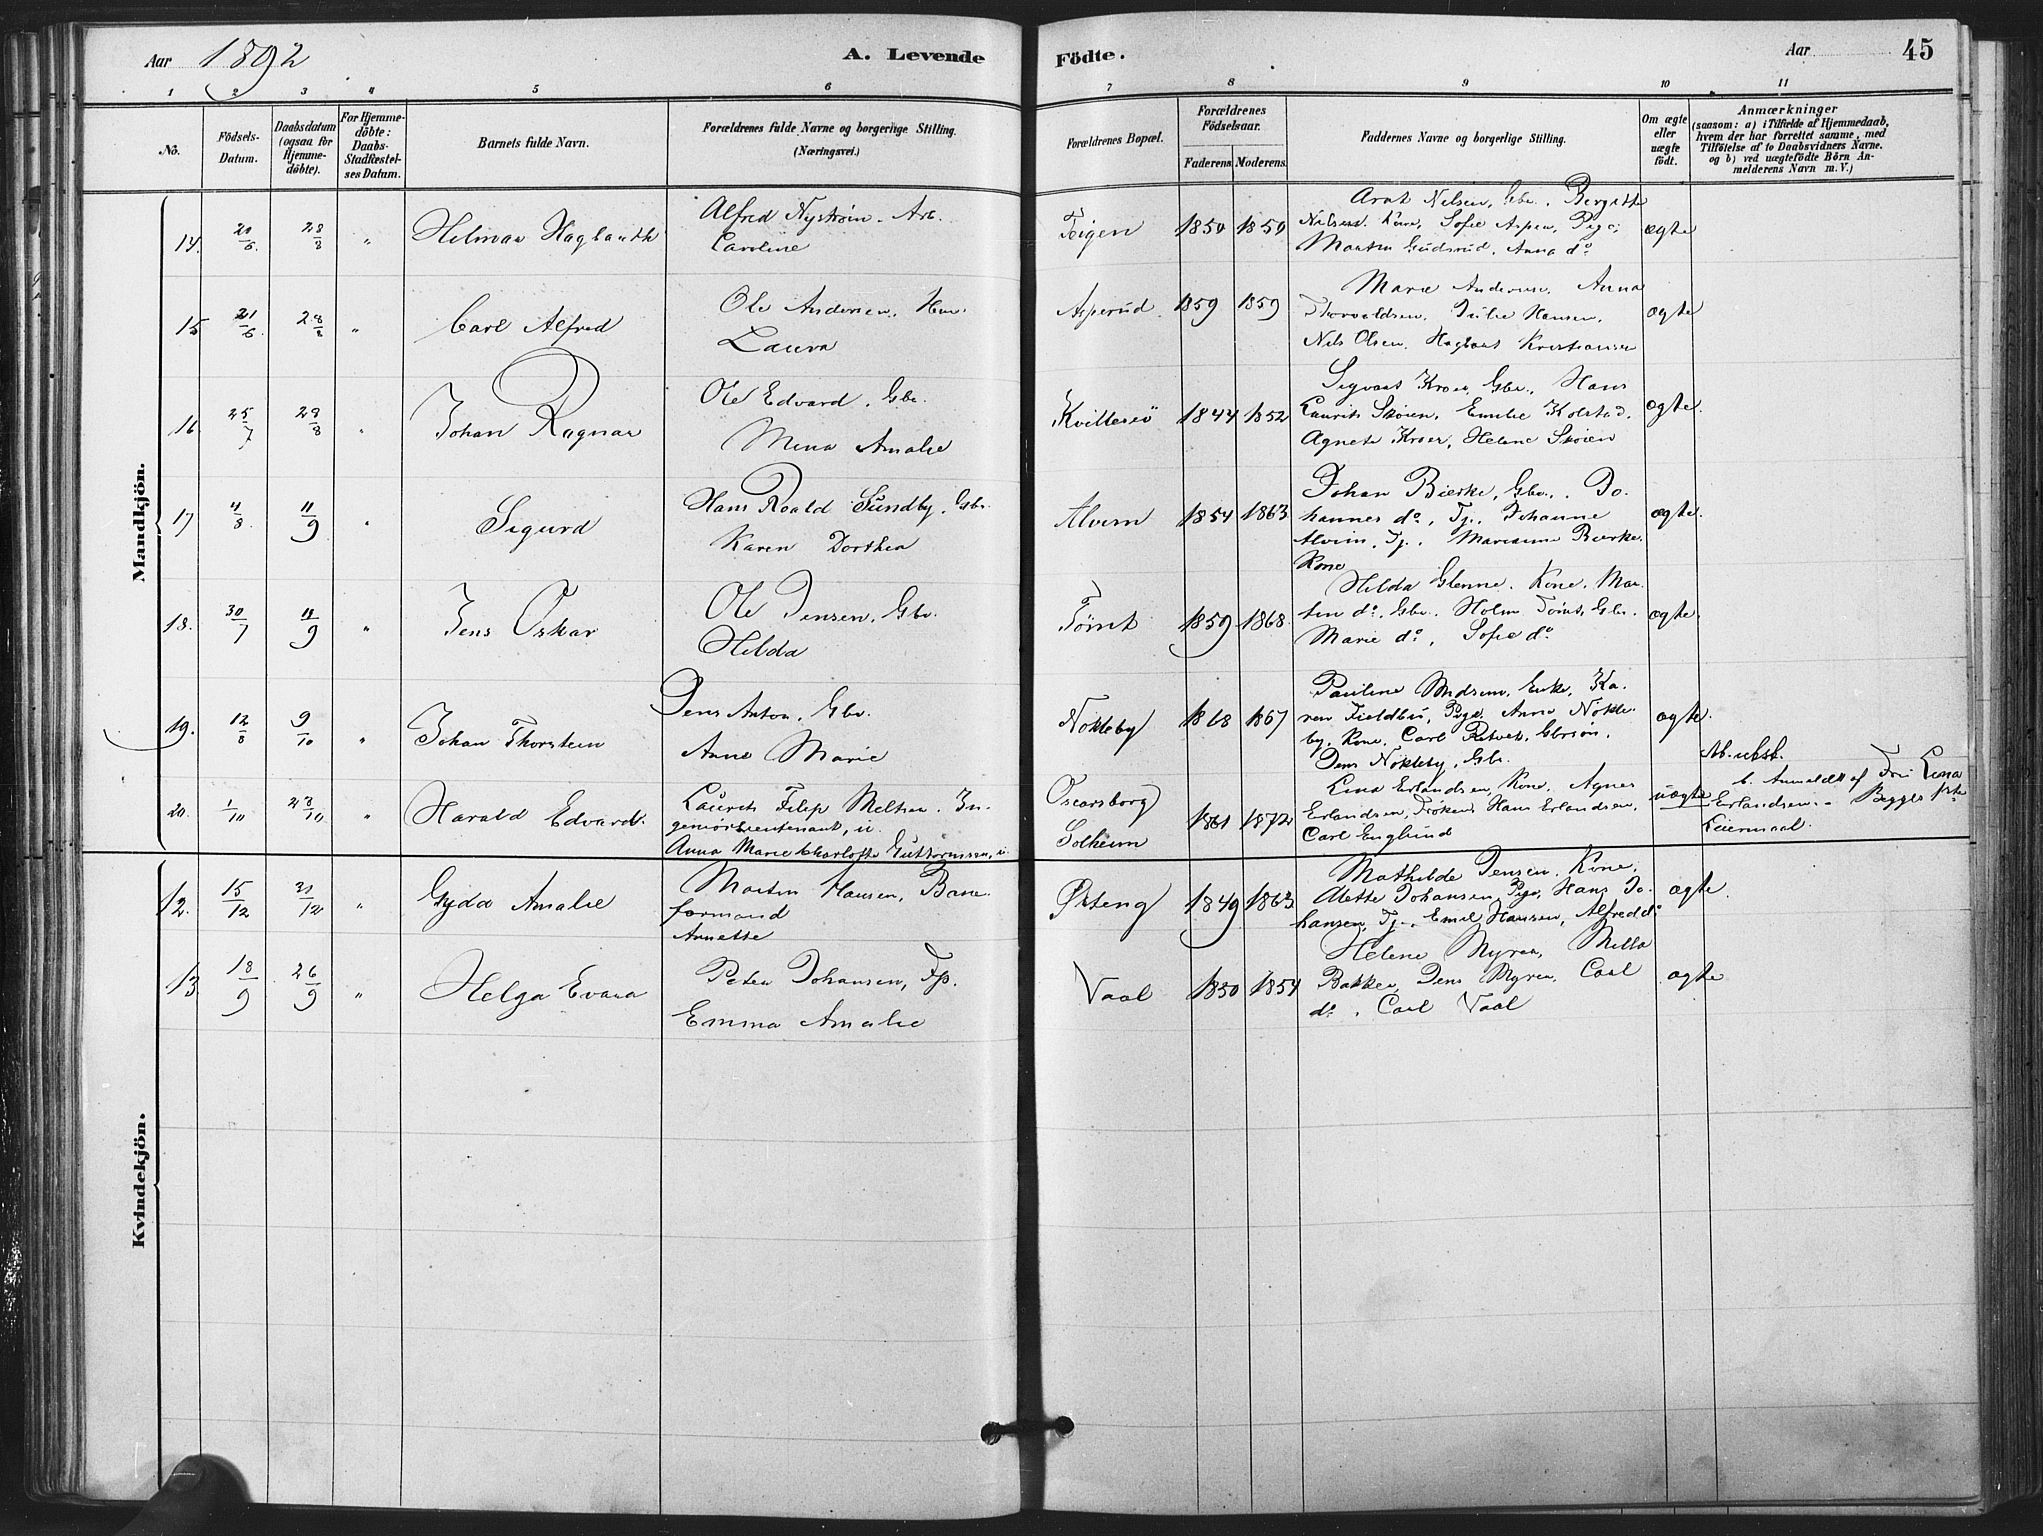 Aar 1892
A. Levende Födte.
Aar
45
1 2 3 4 5 6 7 8 9 10 11
No.
Födsels-Datum.
Daabsdatum (ogsaa for Hjemmedöbte).
For Hjemmedöbte: Daabs-Stadfæstelses Datum.
Barnets fulde Navn.
Forældrenes fulde Navne og borgerlige Stilling.
(Næringsvei.)
Forældrenes Bopæl.
Forældrenes Födselsaar.
Faderens. Moderens.
Faddernes Navne og borgerlige Stilling.
Om ægte eller uægte födt.
Anmærkninger
(saasom: a) i Tilfælde af Hjemmedaab,
hvem der har forrettet samme, med
Tilföielse af to Daabsvidners Navne.
og b) ved uægtefödte Börn An-
melderens Navn m. V.)
Mandkjön.
14. 20/6 28/8 " Hilmar Hagbarth
Alfred Nystrøm. Arb.
Caroline
Teigen 1850 1850
Nilsen, Gbr. Bergitte
Nilsen. Kone, Sofie Aspen, Pige;
Martin Gudsrud, Anna do
ægte
15 21/6 28/8 " Carl Alfred
Ole Andersen,
Laura
Asperud 1859 1859
Marie Andersen, Anna
Thorvaldsen, Julie Hansen,
Nils Olsen. Hagbart Kristiansen
ægte
16 25/7 28/8 " Johan Ragnar
Ole Edvard, Gbr.
Mina Amalie
1844 1852
Sigvart Kroer, Gbr., Hans
Laurits Skoien, Emilie Kolstad,
Agnete Kroer, Helene Skoien
ægte.
17 4/8 11/9 " Sigurd
Hans Roald Sundby, Gbr.
Karen Dorthea
Alvim 1854 1863
Johan Bierke, Gbr., Jo-
hannes do, Tj., Johanne
Alvim, Tj. Marianne Bierke.
Kone
ægte.
18. 30/7 11/9 " Jens Oskar
Ole Jensen, Gbr.
Hilda
Tømt 1859 1868
Hilda Glenne. Kone, Mar-
tin do, Gbr. Holm Tømt, Gbr.
Marie do, Sofie do
ægte.
19. 12/8 9/10 " Johan Thorstein
Jens Anton, Gbr.
Anne Marie
Nøkleby 1868 1867
Pauline Enke, Ka-
ren Fieldbu, Pige. Anne Nøkle-
by, Kone. Carl Gbrsøn,
Jens Nøkleby, Gbr.
ægte.
20. 1/10 23/10 " Harald Edvard.
Laurits Filip Meltzer. In-
geniørlieutenant, u.
Anna Marie Charlotte Guttormsen, u.
Oscarsborg
Solheim 1861 1872
Lina Erlandsen, Kone, Agnes
Erlandsen, Frøken, Hans Erlandsen,
Carl Englund
uægte
Anmeldt af Fru Lina
Erlandsen. Begges 1ste
Leiermaal.
Kvindekjön.
12. 15/12 31/12 " Gyda Amalie
Martin Hansen, Bane-
formand
Annette
Østeng 1849 1863
Mathilde Jensen. Kone,
Alette Johansen, Pige, Hans Jo-
hansen, Tj., Emil Hansen, Alfred do
ægte.
13. 18/9 26/9 " Helga Evara
Peter Johansen,
Emma Amalie
Vaal 1850 1854
Helene Myrer, Milla
Bakken, Jens Myrer, Carl
do, Carl Vaal
ægte